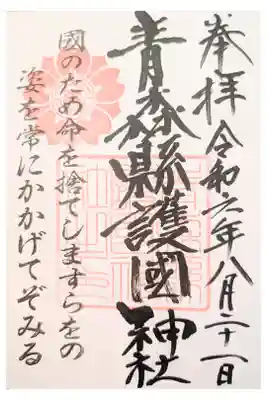 奉拝 令和六年八月二十一日
青森縣護國神社
國のため命を捨てしますらをの
姿を常にかかげてぞみる